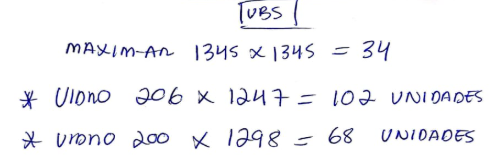 UBS
MAXIM-AR 1345 X 1345 = 34
* VIDRO 206 X 1247 = 102 UNIDADES
* VIDRO 200 X 1298 = 68 UNIDADES